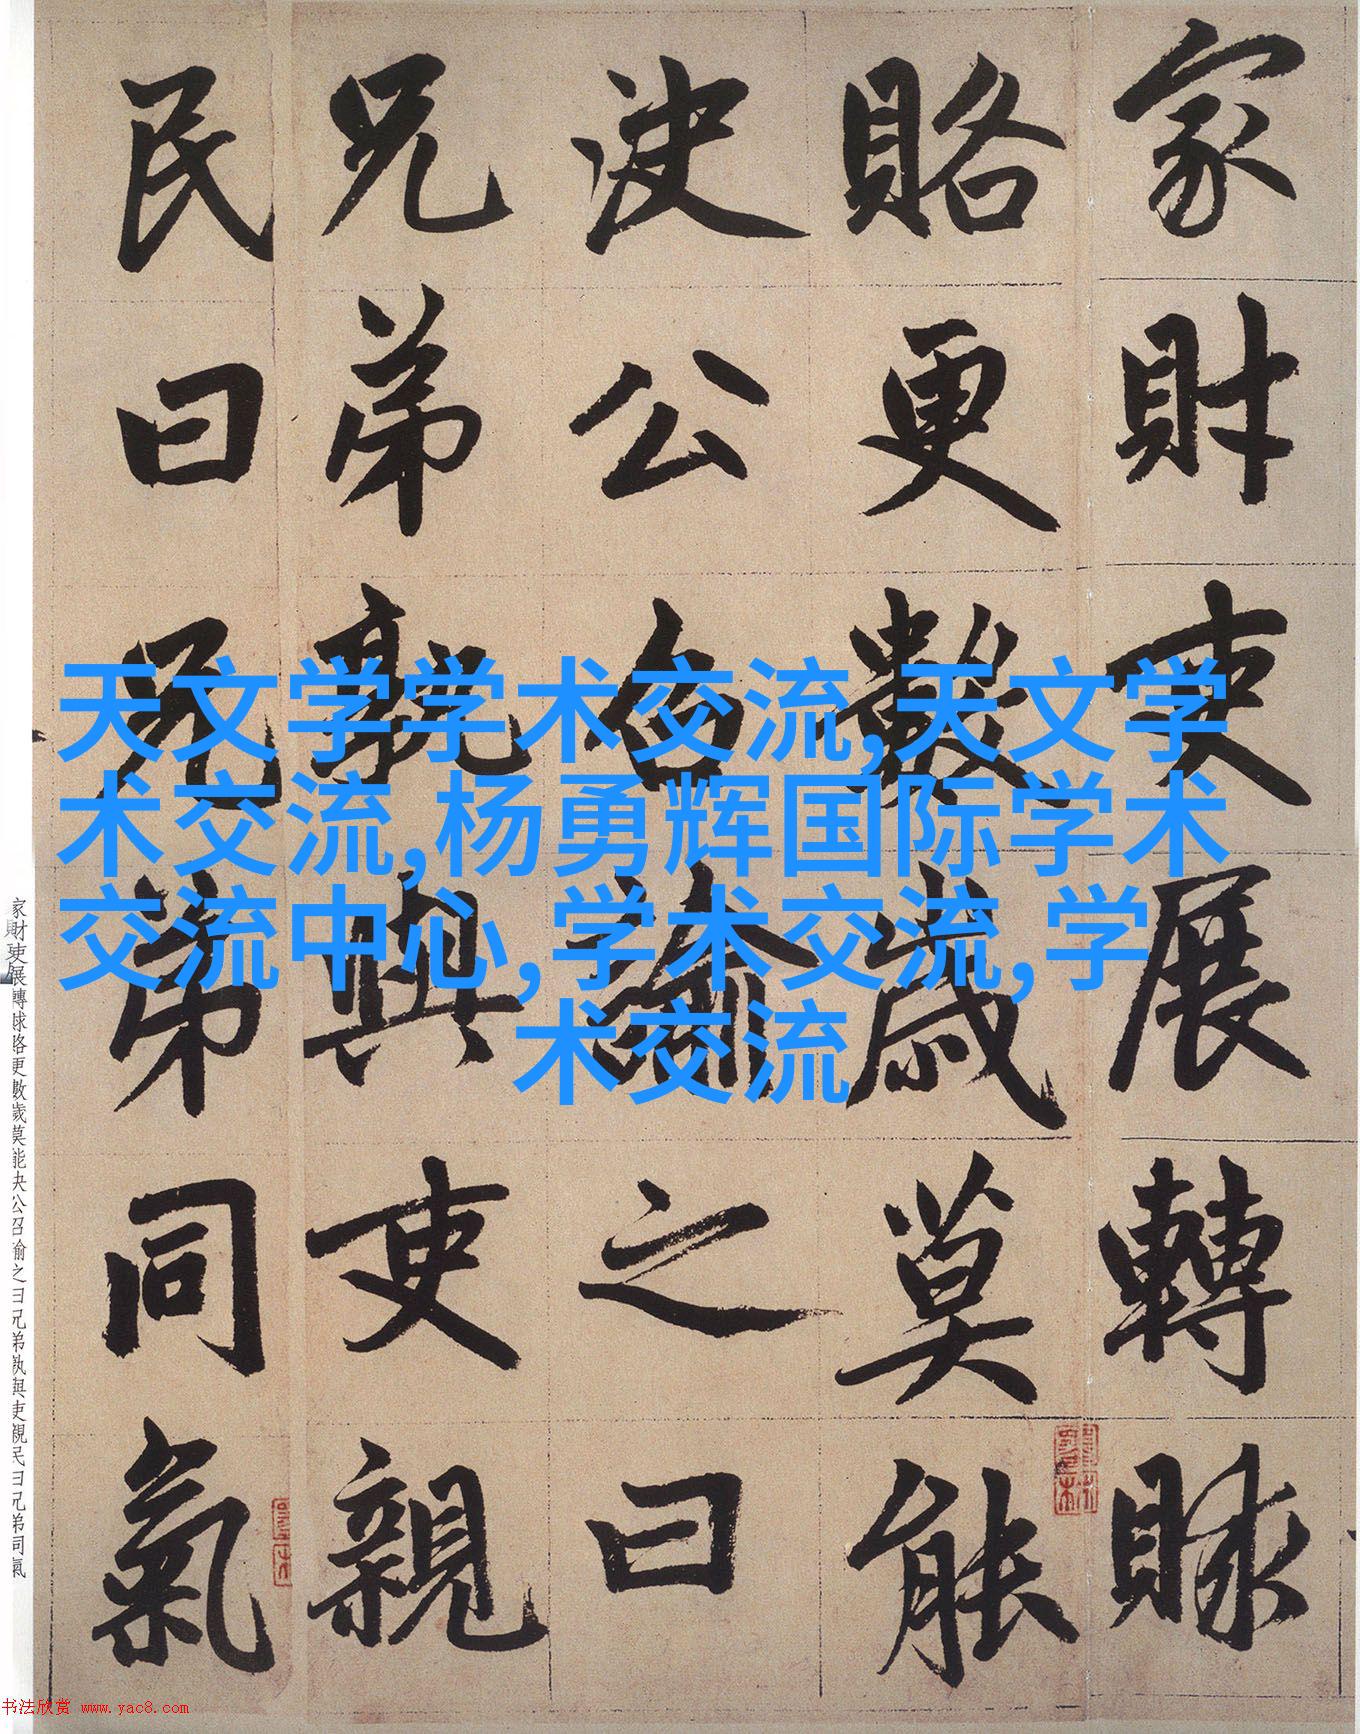 家財吏展轉賕
賂更數歲莫能
決公召諭之曰
兄弟孰與吏親
民曰兄弟同氣
天文学学术交流,天文学
术交流,杨勇辉国际学术
交流中心,学术交流,学
术交流
家財吏展轉賕賂更數歲莫能決公召諭之曰兄弟孰與吏親民曰兄弟同氣
书法欣赏 www.yac8.com